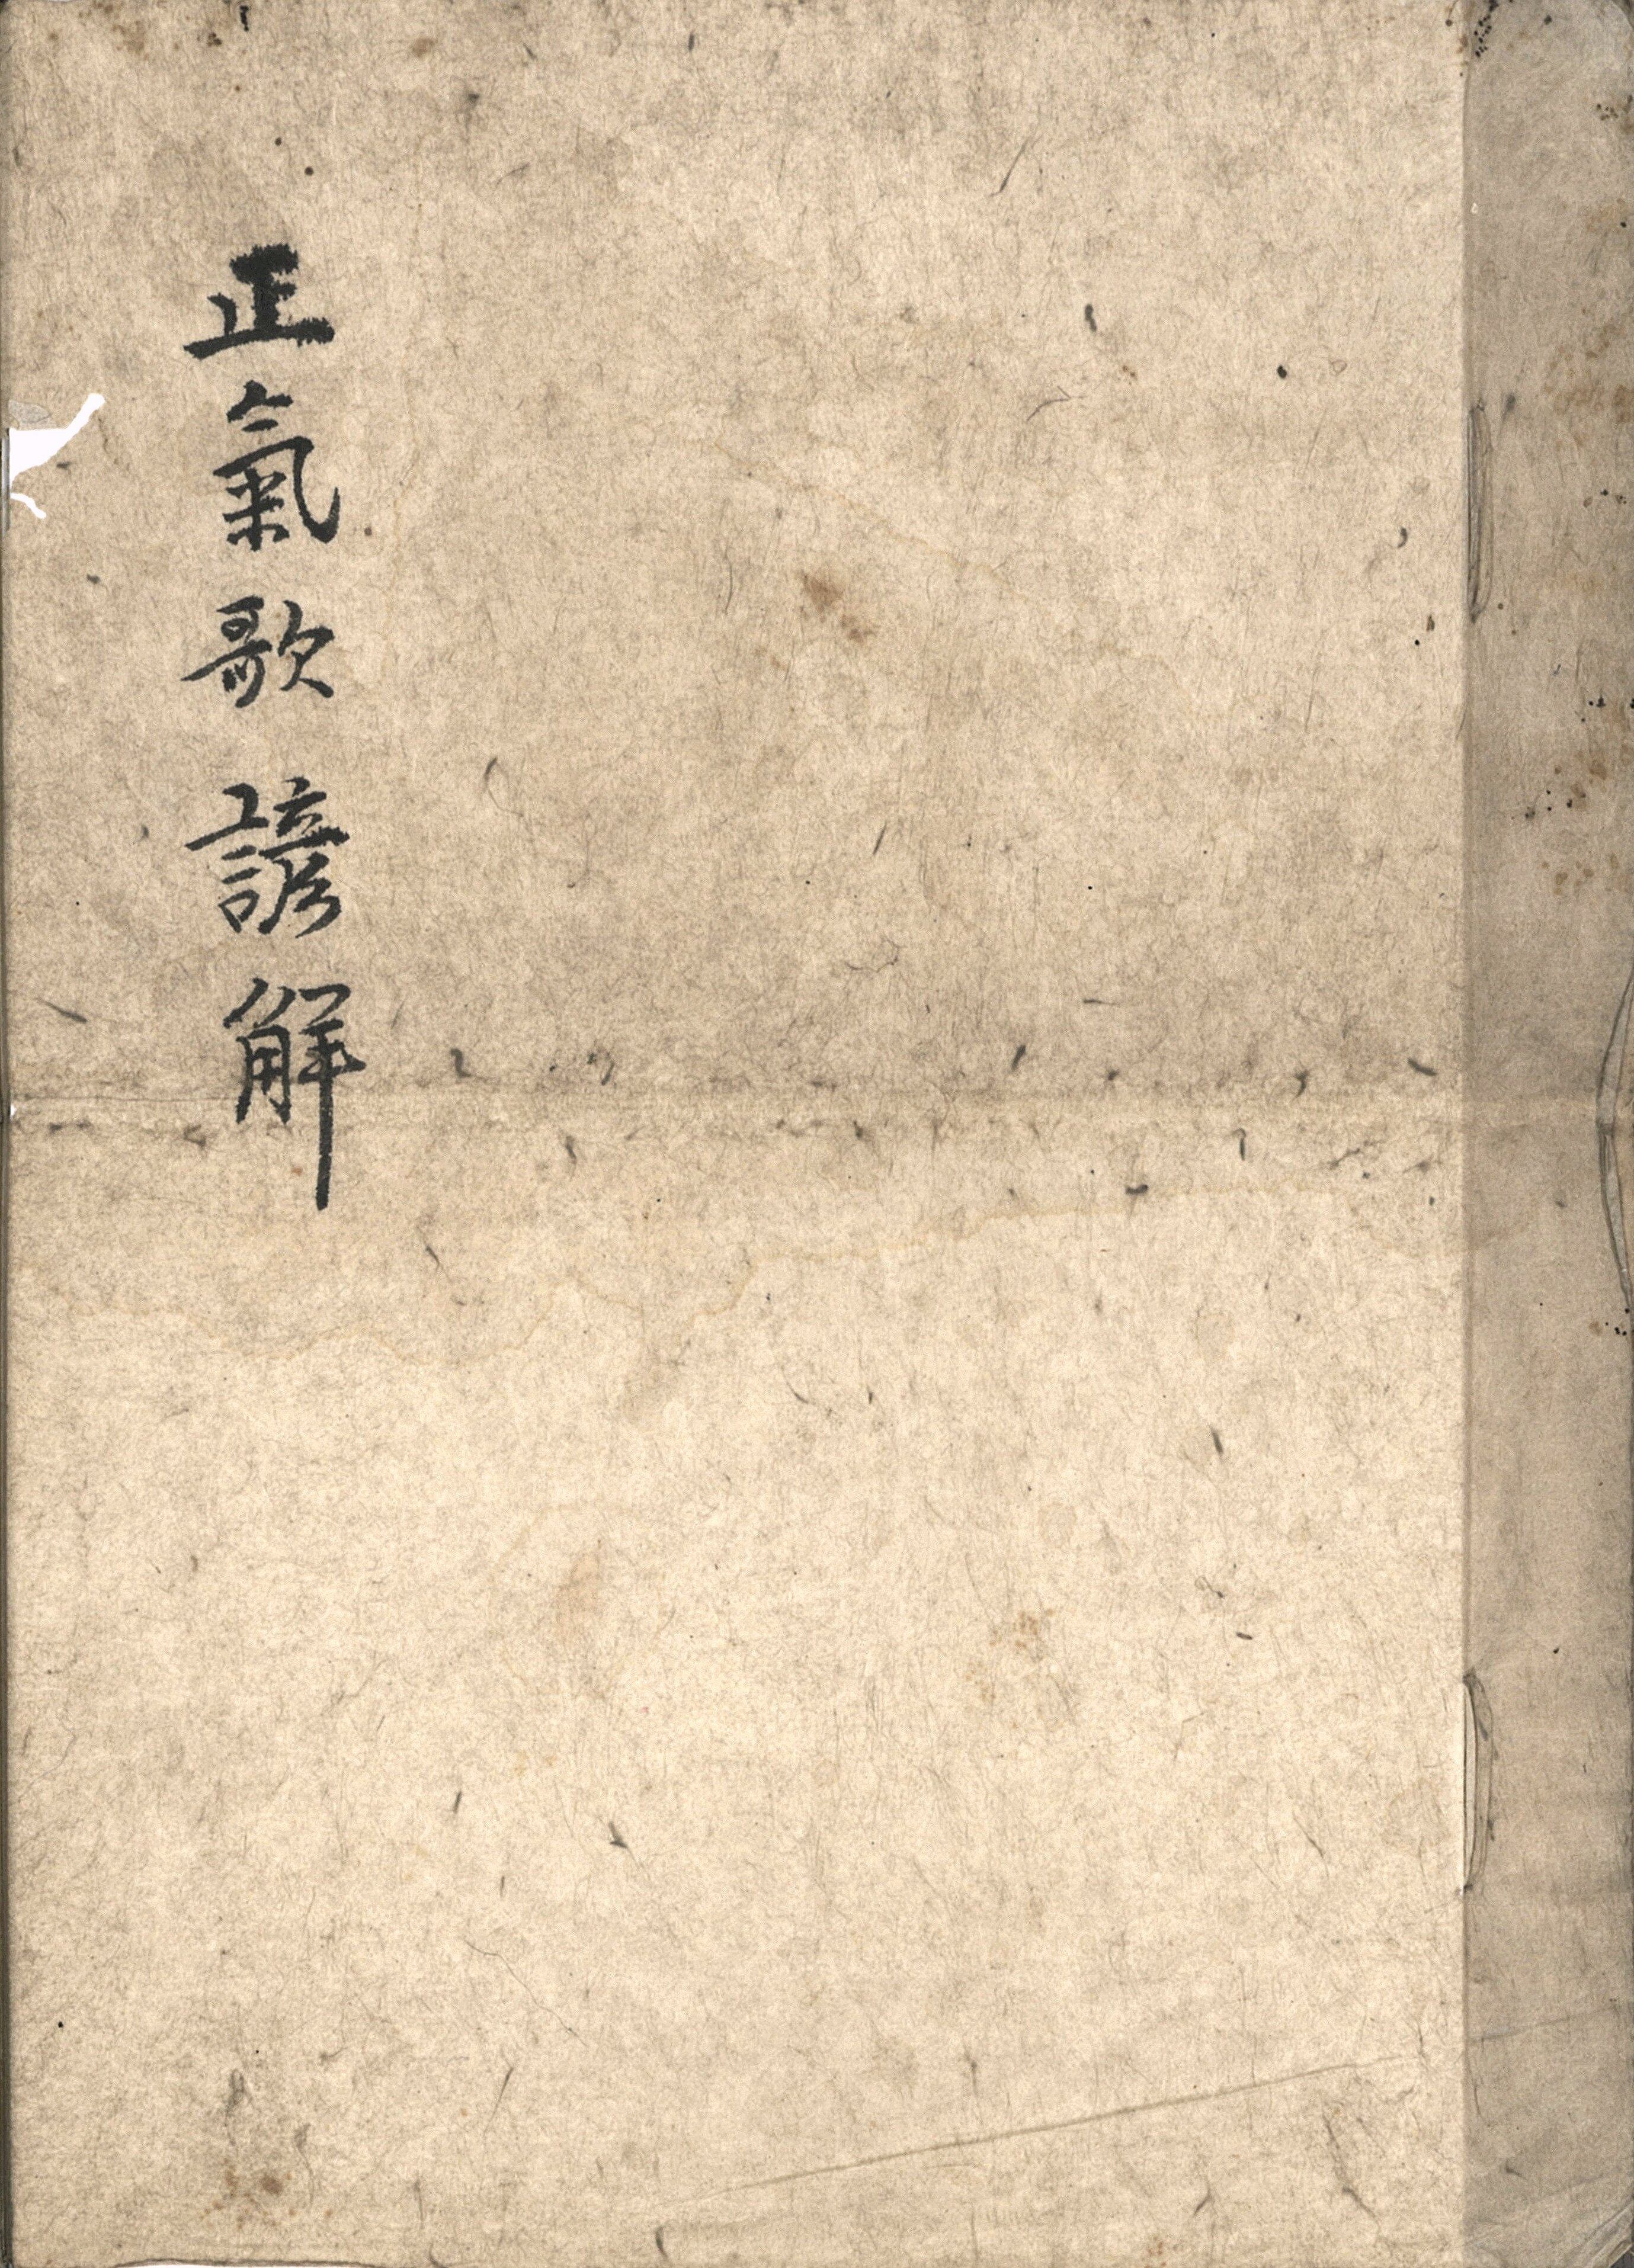 正氣歌諺解